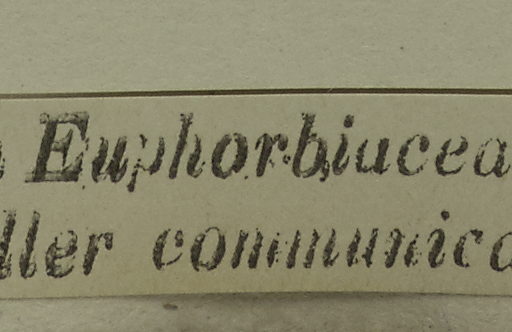 Euphorbiacea
ller communica